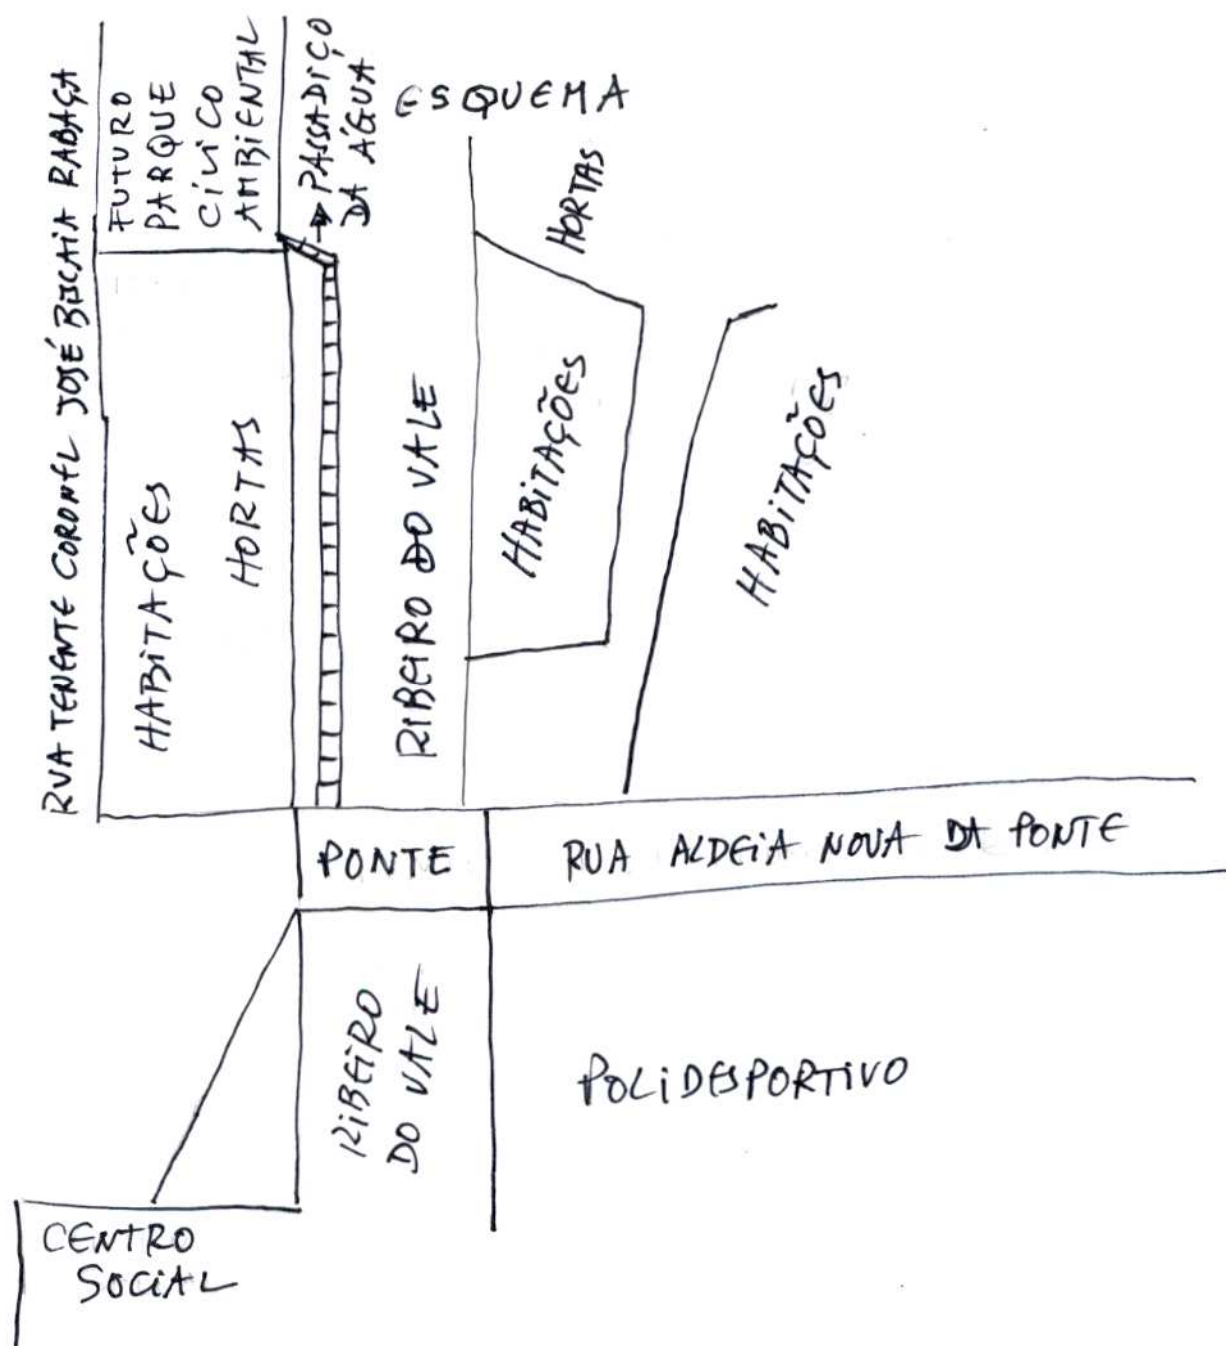 ESQUEMA
RUA TENENTE CORONEL JOSÉ BISCAIA RABAÇA
FUTURO
PARQUE
CÍVICO
AMBIENTAL
PASSADIÇO
DA ÁGUA
HORTAS
HABITAÇÕES
HORTAS
RIBEIRO DO VALE
HABITAÇÕES
HABITAÇÕES
PONTE
RUA ALDEIA NOVA DA PONTE
RIBEIRO
DO VALE
POLIDESPORTIVO
CENTRO
SOCIAL